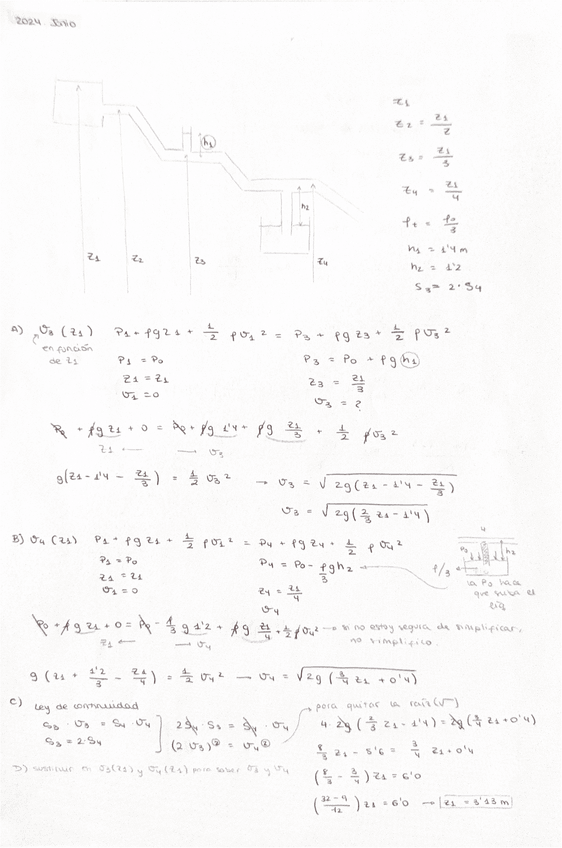 2024 Junio
h1
h2
z1
z2
z3
z4
z1
z2 = z1/2
z3 = z1/3
z4 = z1/4
ρt = ρ0/3
h1 = 1'4 m
h2 = 1'2
S3 = 2·S4
A) v3 (z1) P1 + ρg z1 + 1/2 ρ v1² = P3 + ρg z3 + 1/2 ρ v3²
en función
de z1
P1 = P0
P3 = P0 + ρg h1
z1 = z1
z3 = z1/3
v1 = 0
v3 = ?
P0 + ρg z1 + 0 = P0 + ρg 1'4 + ρg z1/3 + 1/2 ρ v3²
z1 ← → v3
g(z1 - 1'4 - z1/3) = 1/2 v3² → v3 = √2g(z1 - 1'4 - z1/3)
v3 = √2g(2/3 z1 - 1'4)
B) v4 (z1) P1 + ρg z1 + 1/2 ρ v1² = P4 + ρg z4 + 1/2 ρ v4²
P1 = P0
P4 = P0 - ρ/3 g h2
z1 = z1
z4 = z1/4
v1 = 0
v4
4
P0
h2
ρ/3
la P0 hace
que suba el
liq
P0 + ρg z1 + 0 = P0 - ρ/3 g 1'2 + ρg z1/4 + 1/2 ρ v4² → si no estoy segura de simplificar,
no simplifico.
z1 ← → v4
g (z1 + 1'2/3 - z1/4) = 1/2 v4² → v4 = √2g(3/4 z1 + 0'4)
C) Ley de continuidad
S3 · v3 = S4 · v4
S3 = 2·S4
2 S4 · v3 = S4 · v4
(2 v3)² = v4²
para quitar la raíz (√)
4 · 2g (2/3 z1 - 1'4) = 2g (3/4 z1 + 0'4)
8/3 z1 - 5'6 = 3/4 z1 + 0'4
(8/3 - 3/4) z1 = 6'0
(32 - 9/12) z1 = 6'0 → z1 = 3'13 m
D) sustituir en v3(z1) y v4(z1) para saber v3 y v4